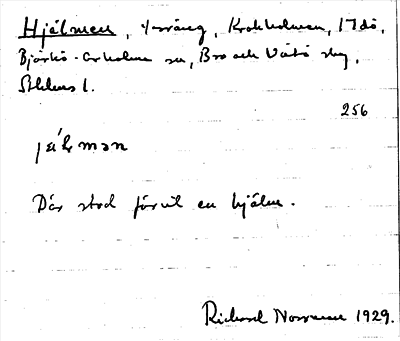 Hjälmen, terräng, Krokholmen, 17 dö,
Björkö-Arholma sn, Bro och Väddö skg,
Sthlms l.
256
jä́lmən
Där stod förut en hjälm.
Rickard Norrman 1929.